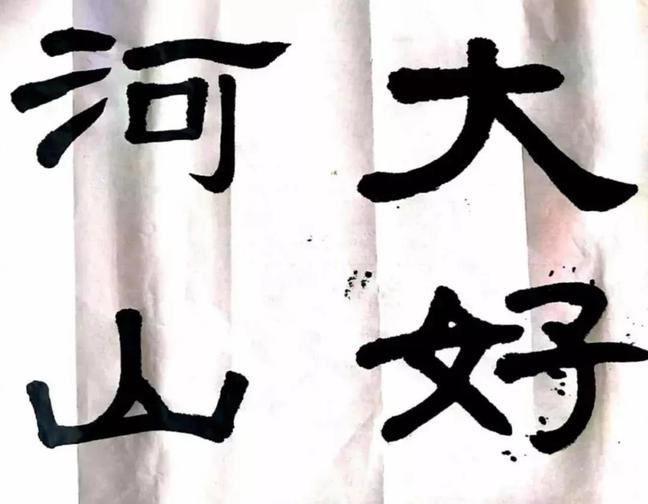 大好
河山